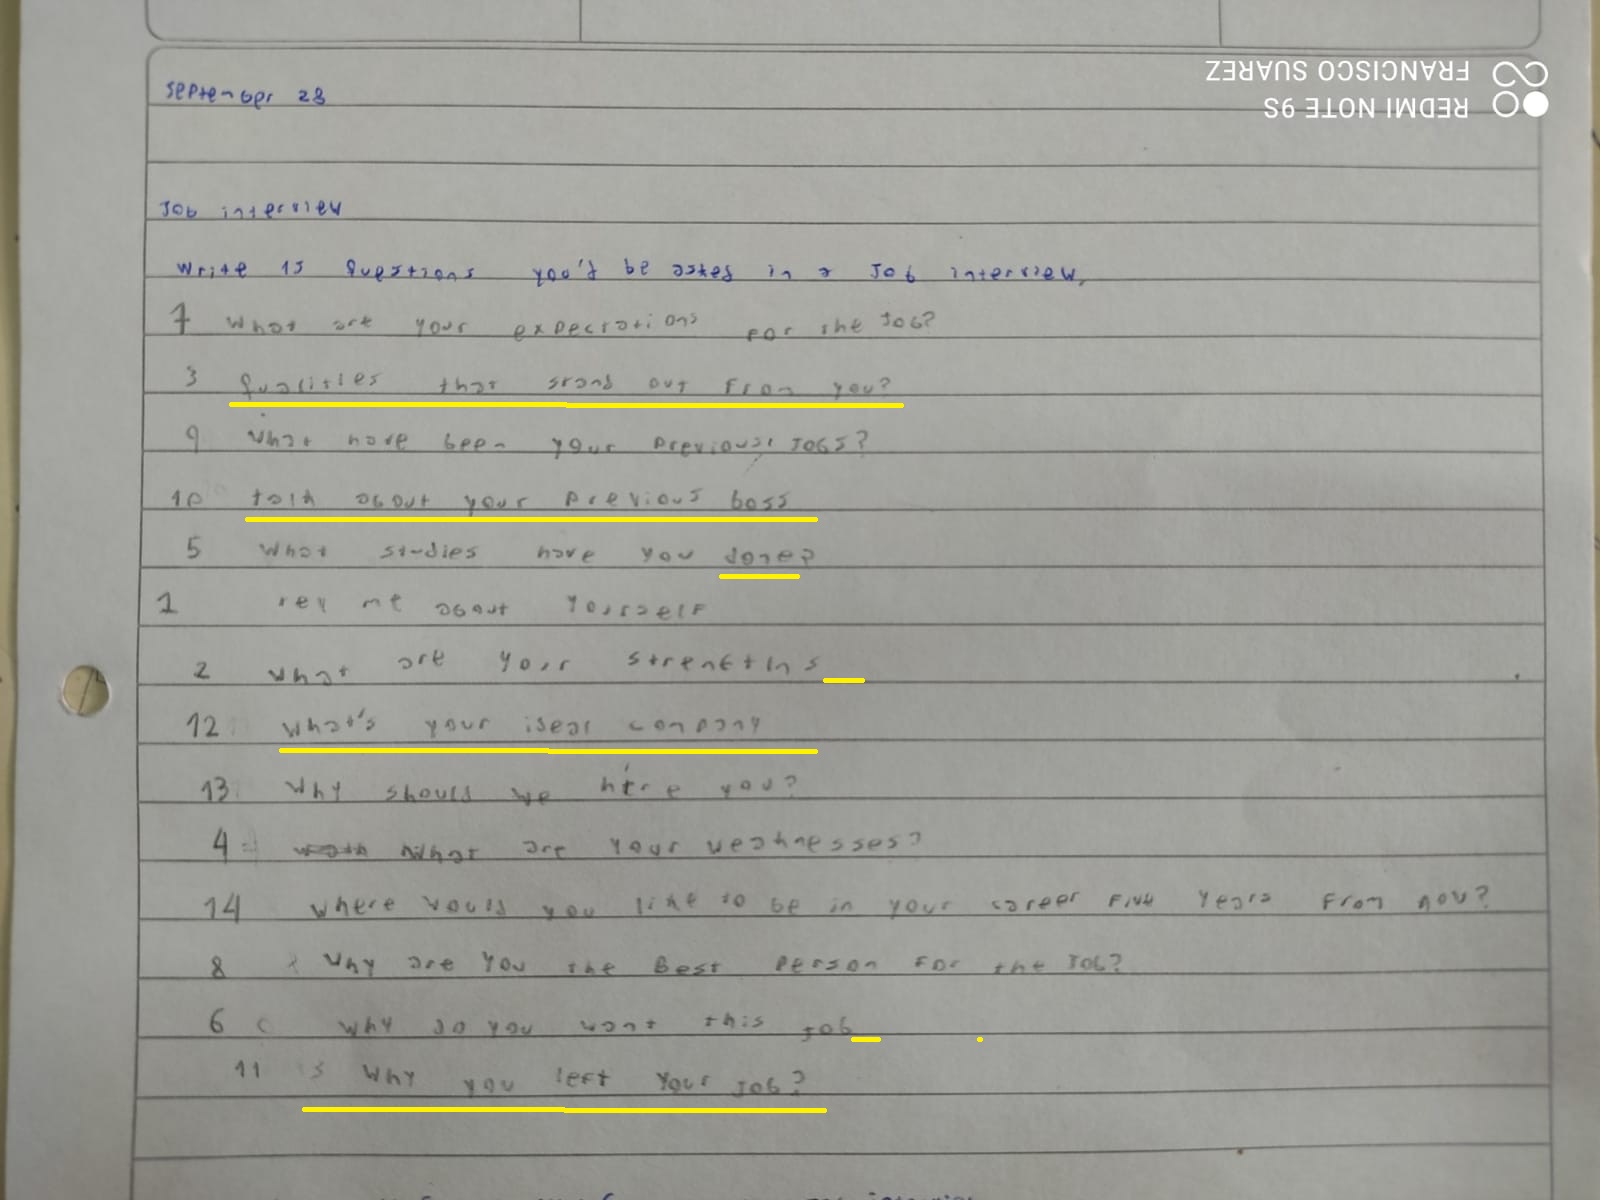 REDMI NOTE 9S
FRANCISCO SUAREZ
September 28
Job interview
Write 15 Questions you'd be asked in a Job interview,
7 What are your expectations for the Job?
3 Qualities that stand out From you?
9 What have been your previous JObs?
10 talk about your previous boss
5 What studies have you done?
1 tell me about yourself
2 What are your strengths
12 What's your ideal company
13 Why should we hire you?
4 What are your weaknesses?
14 Where would you like to be in your career Five Years From now?
8 Why are You the Best Person For the Job?
6 Why do you want this Job
11 Why you left Your Job?